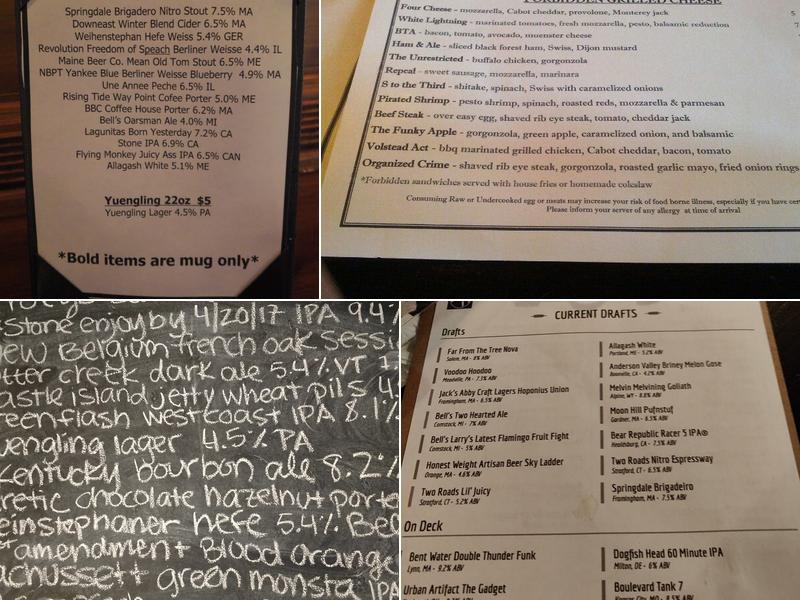 Springdale Brigadero Nitro Stout 7.5% MA
Downeast Winter Blend Cider 6.5% MA
Weihenstephan Hefe Weiss 5.4% GER
Revolution Freedom of Speach Berliner Weisse 4.4% IL
Maine Beer Co. Mean Old Tom Stout 6.5% ME
NBPT Yankee Blue Berliner Weisse Blueberry 4.9% MA
Une Annee Peche 6.5% IL
Rising Tide Way Point Cofee Porter 5.0% ME
BBC Coffee House Porter 6.2% MA
Bell's Oarsman Ale 4.0% MI
Lagunitas Born Yesterday 7.2% CA
Stone IPA 6.9% CA
Flying Monkey Juicy Ass IPA 6.5% CAN
Allagash White 5.1% ME
Yuengling 22oz $5
Yuengling Lager 4.5% PA
*Bold items are mug only*
FORBIDDEN GRILLED CHEESE
Four Cheese - mozzarella, Cabot cheddar, provolone, Monterey jack
White Lightning - marinated tomatoes, fresh mozzarella, pesto, balsamic reduction
BTA - bacon, tomato, avocado, muenster cheese
Ham & Ale - sliced black forest ham, Swiss, Dijon mustard
The Unrestricted - buffalo chicken, gorgonzola
Repeal - sweet sausage, mozzarella, marinara
S to the Third - shitake, spinach, Swiss with caramelized onions
Pirated Shrimp - pesto shrimp, spinach, roasted reds, mozzarella & parmesan
Beef Steak - over easy egg, shaved rib eye steak, tomato, cheddar jack
The Funky Apple - gorgonzola, green apple, caramelized onion, and balsamic
Volstead Act - bbq marinated grilled chicken, Cabot cheddar, bacon, tomato
Organized Crime - shaved rib eye steak, gorgonzola, roasted garlic mayo, fried onion rings
*Forbidden sandwiches served with house fries or homemade coleslaw
Consuming Raw or Undercooked egg or meats may increase your risk of food borne illness, especially if you have cer
Please inform your server of any allergy at time of arrival
Stone enjoy by 4/20/17 IPA 9.4%
ew Belgium french oak Sessi
tter creek dark ale 5.4% VT
astle island jetty wheat pils 4
eenflash westcoast IPA 8.1%
uengling lager 4.5% PA
Kentucky bourbon ale 8.2%
retic chocolate hazelnut porte
einstephaner hefe 5.4% Be
amendment Blood orange
achussett green monsta IPA
CURRENT DRAFTS
Drafts
Far From The Tree Nova
Salem, MA - 8% ABV
Voodoo Hoodoo
Meadville, PA - 7.3% ABV
Jack's Abby Craft Lagers Hoponius Union
Framingham, MA - 6.5% ABV
Bell's Two Hearted Ale
Comstock, MI - 7% ABV
Bell's Larry's Latest Flamingo Fruit Fight
Comstock, MI - 5% ABV
Honest Weight Artisan Beer Sky Ladder
Orange, MA - 4.6% ABV
Two Roads Lil' Juicy
Stratford, CT - 5.2% ABV
Allagash White
Portland, ME - 5.2% ABV
Anderson Valley Briney Melon Gose
Boonville, CA - 4.2% ABV
Melvin Melvining Goliath
Alpine, WY - 8.8% ABV
Moon Hill Pufnstuf
Gardner, MA - 6.5% ABV
Bear Republic Racer 5 IPA®
Healdsburg, CA - 7.5% ABV
Two Roads Nitro Espressway
Stratford, CT - 6.5% ABV
Springdale Brigadeiro
Framingham, MA - 7.5% ABV
On Deck
Bent Water Double Thunder Funk
Lynn, MA - 9.2% ABV
Urban Artifact The Gadget
Dogfish Head 60 Minute IPA
Milton, DE - 6% ABV
Boulevard Tank 7
Kansas City, MO - 8.5% ABV